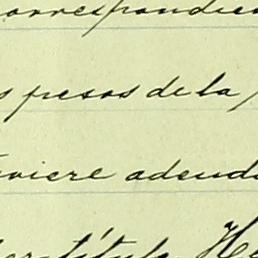 correspondien
s pesos de la
viere adeuda
título He